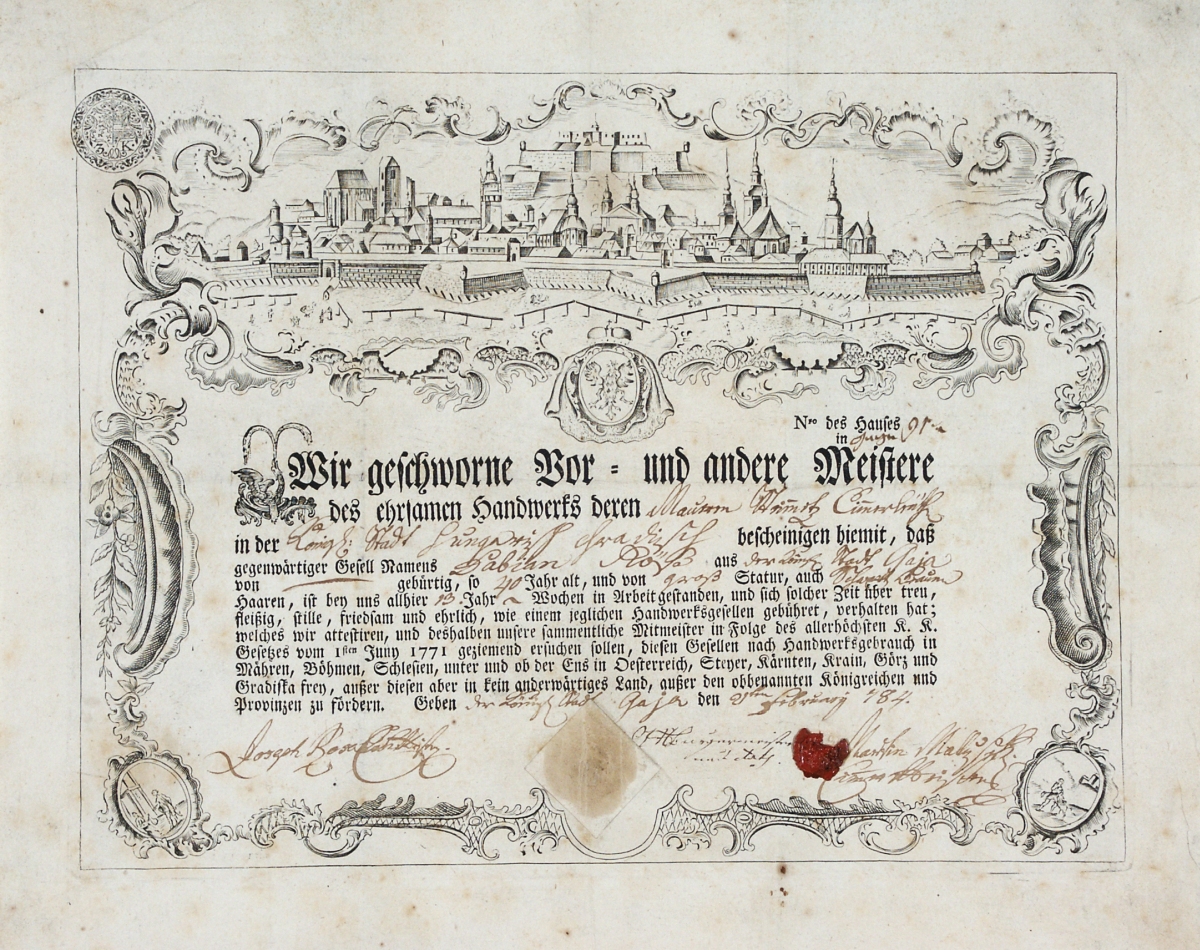 Nro des Hauses 91
in
Wir geschworne Vor- und andere Meistere
des ehrsamen Handwerks deren Maurern
in der Königl: Stadt Hungarisch Hradisch bescheinigen hiemit, daß
gegenwärtiger Gesell Namens Fabian aus der Königl Stadt Gaja
von gebürtig, so 40 Jahr alt, und von groß Statur, auch Schwartz Braun
Haaren, ist bey uns allhier 13 Jahr Wochen in Arbeit gestanden, und sich solcher Zeit über treu,
fleißig, stille, friedsam und ehrlich, wie einem jeglichen Handwerksgesellen gebühret, verhalten hat;
welches wir attestiren, und deshalben unsere sammentliche Mitmeister in Folge des allerhöchsten K. K.
Gesetzes vom 1sten Juny 1771 geziemend ersuchen sollen, diesen Gesellen nach Handwerksgebrauch in
Mähren, Böhmen, Schlesien, unter und ob der Ens in Oesterreich, Steyer, Kärnten, Krain, Görz und
Gradiska frey, außer diesen aber in kein anderwärtiges Land, außer den obbenannten Königreichen und
Provinzen zu fördern. Geben der Königl Stadt Gaja den February
Joseph
Martin